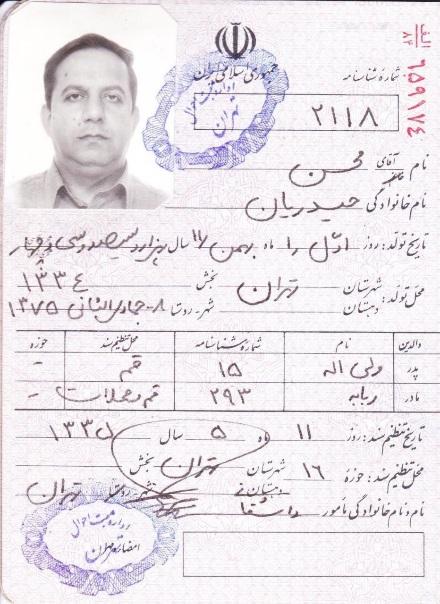 الف ۸۴ ۶۵۹۱۷۴
جمهوری اسلامی ایران
شماره شناسنامه
۲۱۱۸
نام آقای محسن
نام خانوادگی حیدریان
تاریخ تولد: روز اول را ماه بهمن/۱۱ سال یکهزار و سیصد و سی و چهار
۱۳۳۴
محل تولد: شهرستان تهران بخش
دهستان شهر-روستا ۸-جمادی الثانی ۱۳۷۵
والدین نام شماره شناسنامه محل تنظیم سند حوزه
پدر ولی اله ۱۵ قم -
مادر ربابه ۲۹۳ قم محلات -
تاریخ تنظیم سند: روز ۱۱ ماه ۵ سال ۱۳۳۵
محل تنظیم سند: حوزه ۱۶ شهرستان تهران بخش
دهستان شهر-روستا تهران
نام و نام خانوادگی مأمور
اداره ثبت احوال
تهران